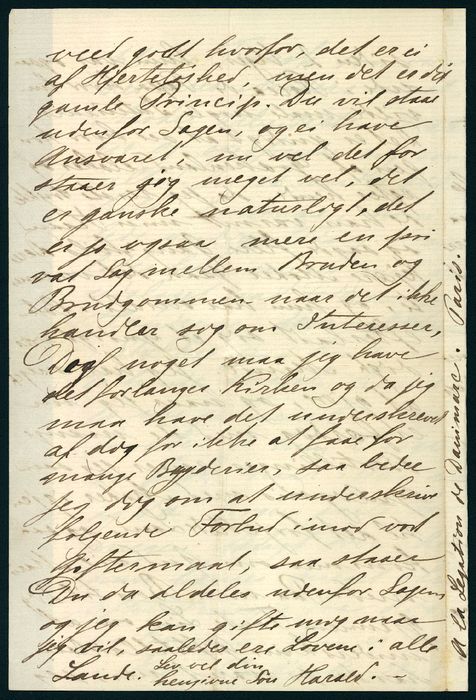 veed godt hvorfor, det er ei
af Hjerteløshed, men det er dit
gamle Princip. Du vil staae
udenfor Sagen, og ei have
Ansvaret, nu vel det for
staaer jeg meget vel, det
er ganske naturligt, det
er jo ogsaa mere en pri
vat Sag mellem Bruden og
Brudgommen naar det ikke
handler sog om Interesser,
Dog noget maa jeg have
det forlanger Kirken og da jeg
maa have det underskrevet
af dog for ikke at faae for
mange Bryderier, saa beder
jeg dog om at underskrive
følgende Forbud imod vort
Giftermaal, saa staaer
Du da aldeles udenfor Sagen
og jeg kan gifte mig naar
jeg vil, saaledes ere Lovene i alle
Lande. Lev vel din
hengivne Søn Harald. —
A la Legation de Danimarc. Paris.